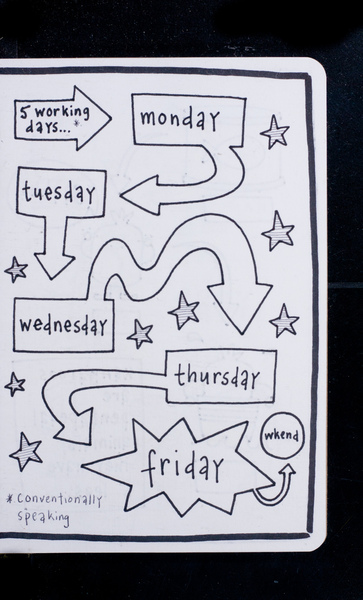 5 working
days...*
monday
tuesday
wednesday
thursday
friday
wkend
*conventionally
speaking